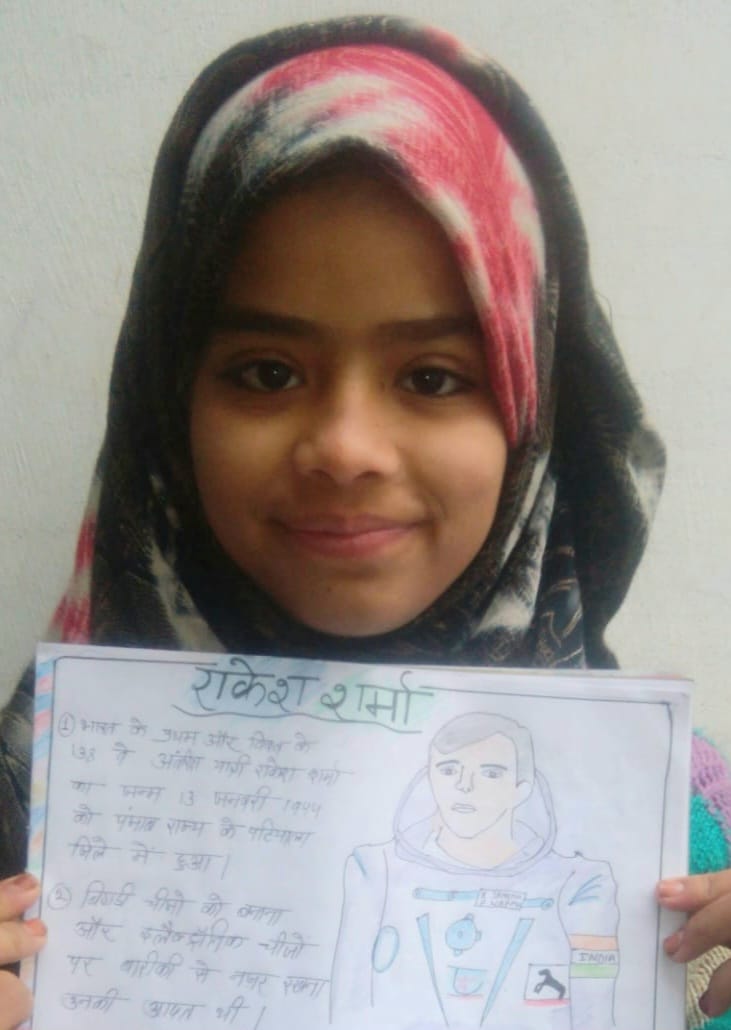 राकेश शर्मा
① भारत के प्रथम और विश्व के
138 वे अंतरिक्ष यात्री राकेश शर्मा
का जन्म 13 जनवरी 1949
को पंजाब राज्य के पटियाला
जिले में हुआ।
② बिगडी चीजो को बनाना
और इलैक्ट्रॉनिक चीजो
पर बारीकी से नजर रखना
उनकी आदत थी।
INDIA